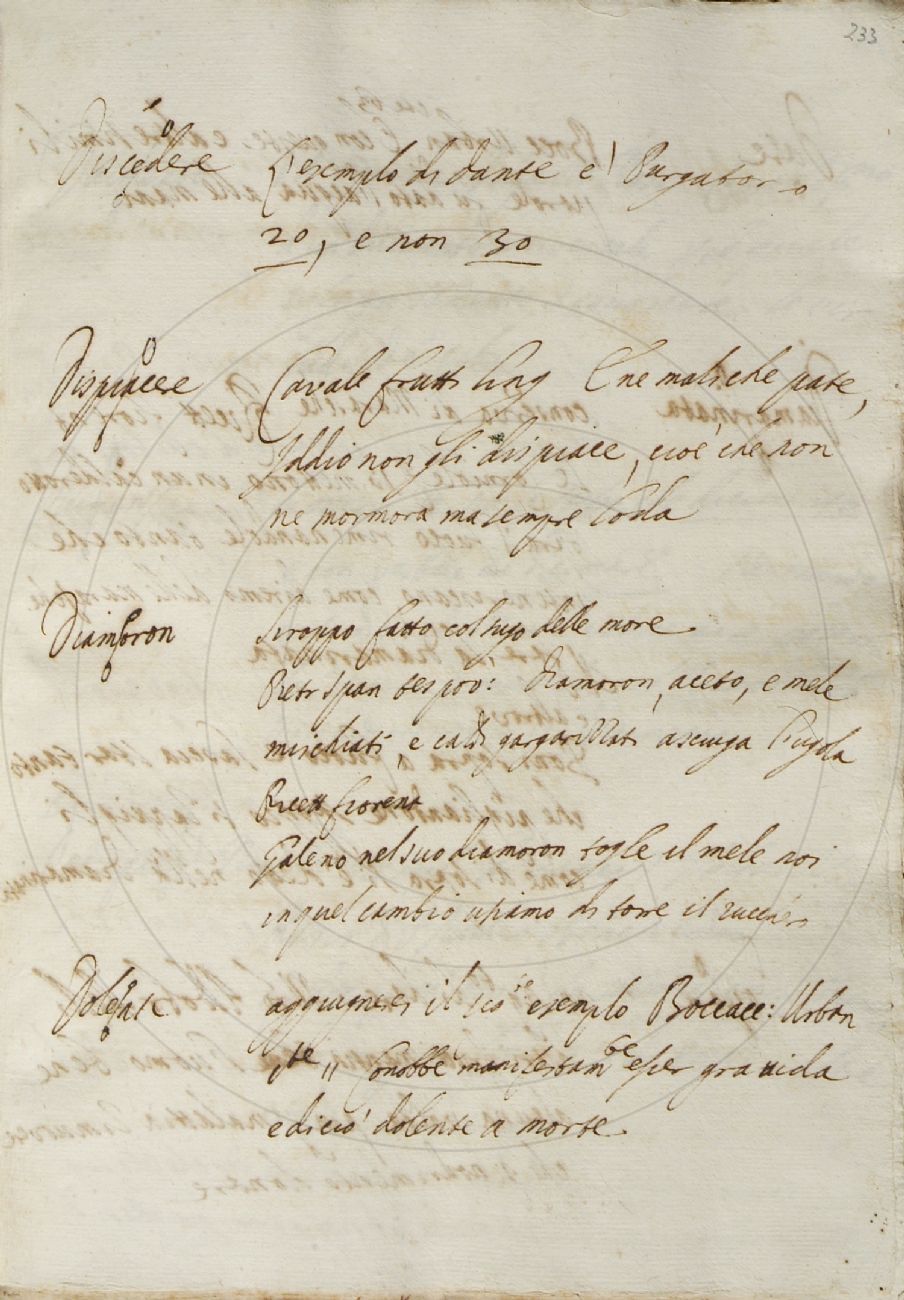 233
Discedere L'esempio di dante e' Purgatorio
20, e non 30
Dispiacere Cavalc frutti ling E ne mali che pate,
Iddio non gli dispiace, cioè, che non
ne mormora ma sempre loda
Diamoron siroppo fatto col sugo delle more
Pietr span tes pov: diamoron, aceto, e mele
mischiati, e caldi gargarizzati asciuga l'ugola
Ricett fiorent
Galeno nel suo diamoron togle il mele noi
in quel cambio usiamo di torre il zucchero
Dolente aggiugnersi il esemplo Boccacc: Urban
Conobbe manifestam.te esser gravida
e di ciò dolente a morte